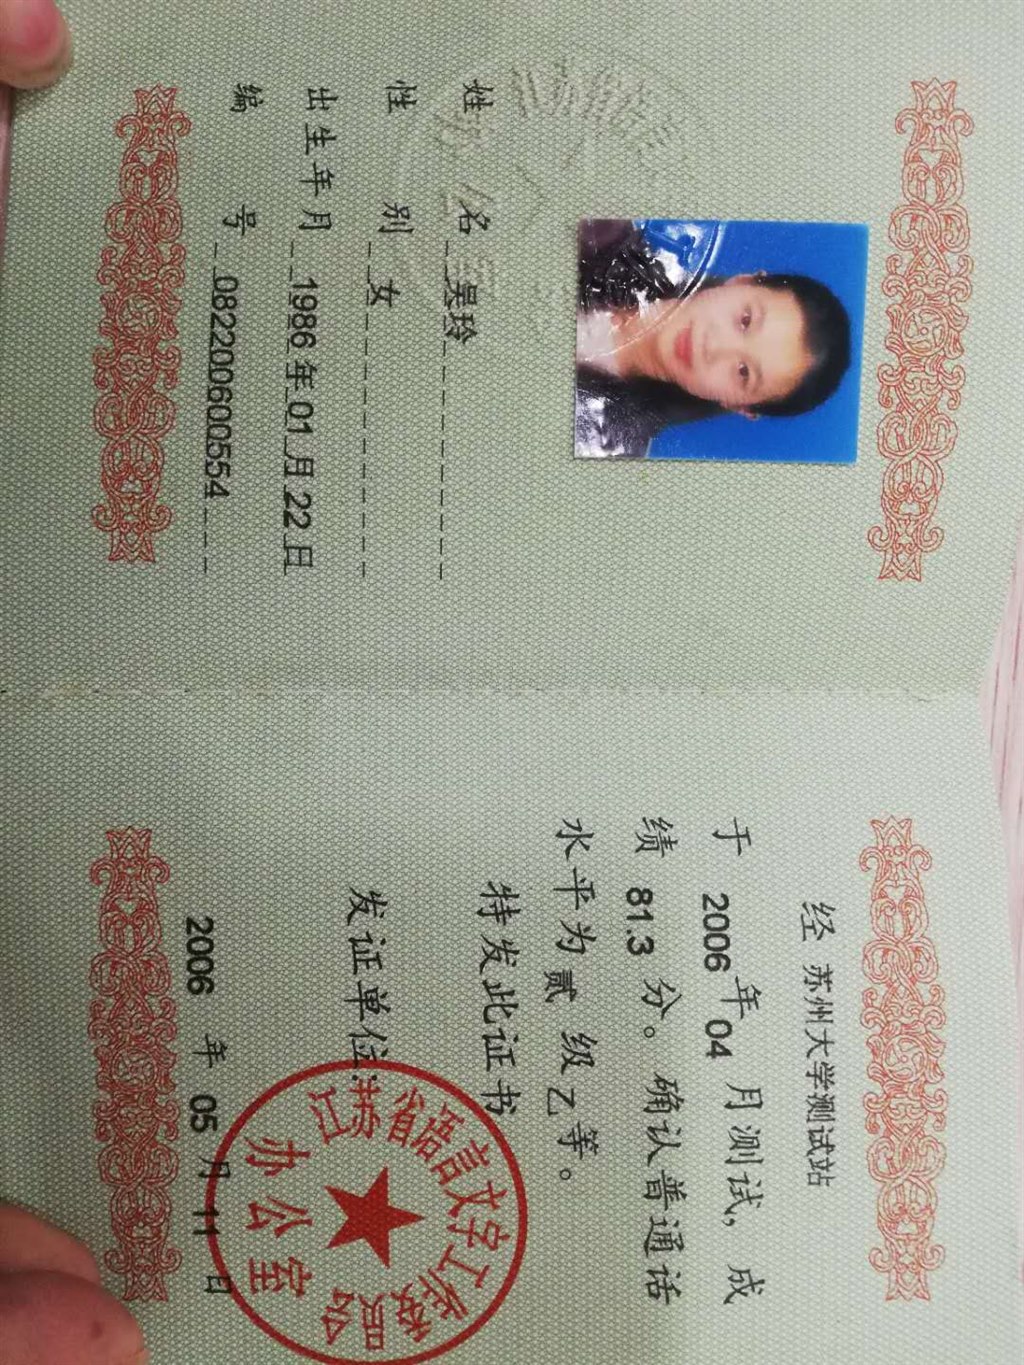 姓 名 吴玲
性 别 女
出生年月 1986年01月22日
编 号 082200600554
经 苏州大学测试站
于 2006 年 04 月测试，成
绩 81.3 分。确认普通话
水平为贰 级 乙 等。
特发此证书
发证单位：
江苏省语言文字工作委员会
办公室
2006 年 05 月 11 日